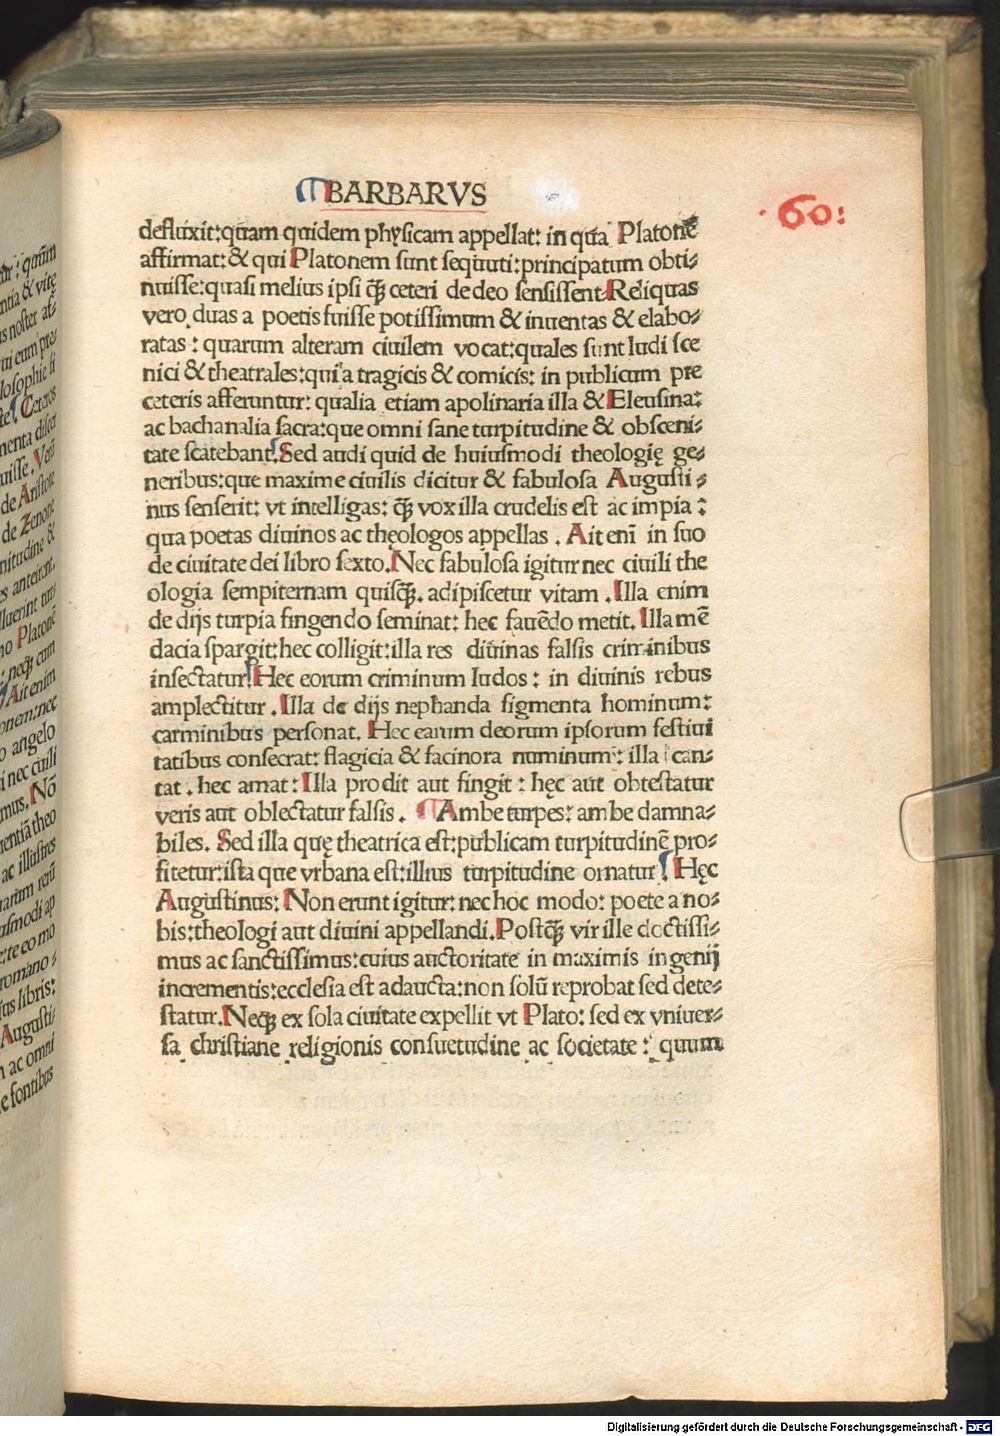 BARBARVS
60
defluxit: quam quidem phyſicam appellat: in qua Platonē
affirmat: & qui Platonem ſunt ſequuti: principatum obti⸗
nuiſſe: quaſi melius ipſi q̄ꝫ ceteri de deo ſenſiſſent. Reliquas
vero duas a poetis fuiſſe potiſſimum & inuentas & elabo⸗
ratas: quarum alteram ciuilem vocat: quales ſunt ludi ſce
nici & theatrales: qui a tragicis & comicis: in publicum pre
ceteris afferuntur: qualia etiam apolinaria illa & Eleuſina:
ac bachanalia ſacra: que omni ſane turpitudine & obſceni⸗
tate ſcatebant. Sed audi quid de huiuſmodi theologię ge⸗
neribus: que maxime ciuilis dicitur & fabuloſa Auguſti⸗
nus ſenſerit: vt intelligas: q̄ꝫ vox illa crudelis eſt ac impia:
qua poetas diuinos ac thęologos appellas. Ait eni in ſuo
de ciuitate dei libro ſexto. Nec fabuloſa igitur nec ciuili the
ologia ſempiternam quiſqꝫ. adipiſcetur vitam. Illa enim
de dijs turpia fingendo ſeminat: hec fauēdo metit. Illa mē
dacia ſpargit: hec colligit: illa res diuinas falſis criminibus
inſectatur. Hec eorum criminum ludos: in diuinis rebus
amplectitur. Illa de dijs nephanda figmenta hominum:
carminibus perſonat. Hec earum deorum ipſorum feſtiui
tatibus conſecrat: flagicia & facinora numinum: illa can⸗
tat. hec amat: Illa prodit aut fingit: hęc aut obteſtatur
veris aut oblectatur falſis. Ambe turpes: ambe damna⸗
biles. Sed illa quę theatrica eſt: publicam turpitudinē pro⸗
fitetur: iſta que vrbana eſt: illius turpitudine ornatur. Hęc
Auguſtinus: Non erunt igitur: nec hoc modo: poete a no⸗
bis: theologi aut diuini appellandi. Poſtq̄ꝫ vir ille doctiſſi⸗
mus ac ſanctiſſimus: cuius auctoritate in maximis ingenij
incrementis: eccleſia eſt adaucta: non ſolū reprobat ſed dete⸗
ſtatur. Neqꝫ ex ſola ciuitate expellit vt Plato: ſed ex vniuer⸗
ſa chriſtiane religionis conſuetudine ac ſocietate: quum
Digitalisierung gefördert durch die Deutsche Forschungsgemeinschaft - DFG